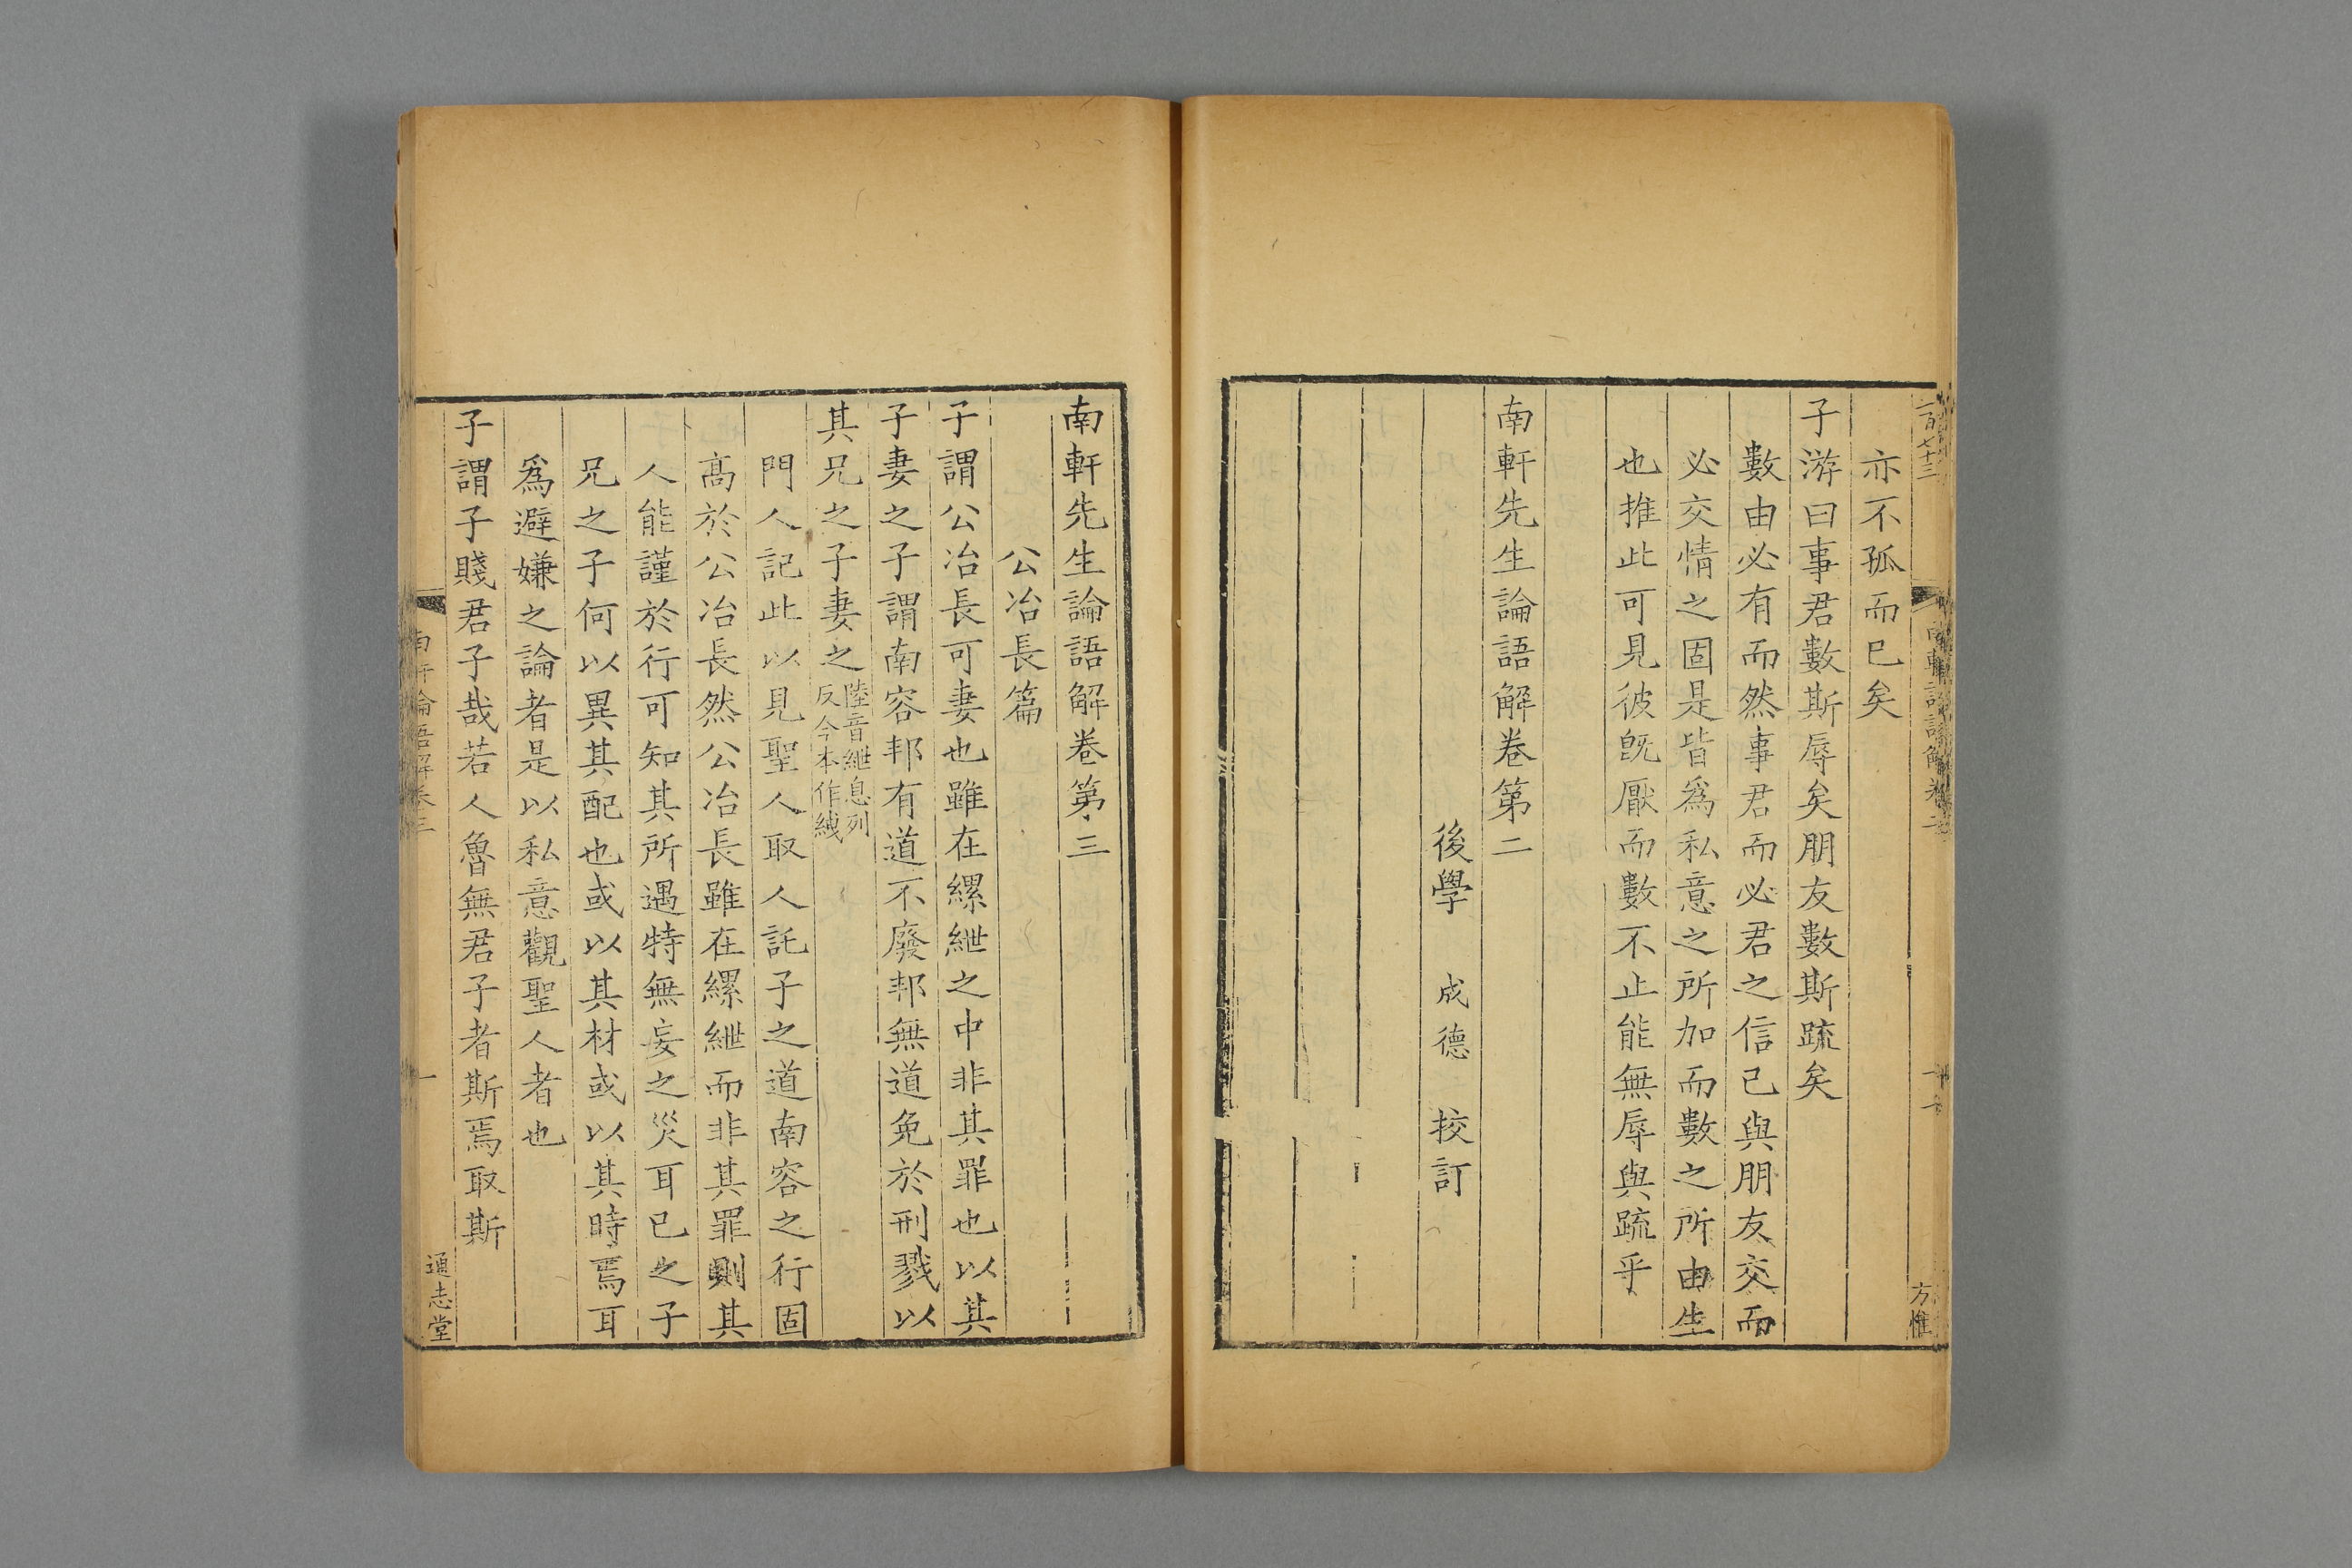 一百七十三
亦不孤而已矣
子游曰事君數斯辱矣朋友數斯疏矣
數由必有而然事君而必君之信己與朋友交而
必交情之固是皆爲私意之所加而數之所由生
也推此可見彼旣厭而數不止能無辱與疏乎
南軒先生論語解卷第二
後學 成德 挍訂
方惟
南軒先生論語解卷第三
公冶長篇
子謂公冶長可妻也雖在縲紲之中非其罪也以其
子妻之子謂南容邦有道不廢邦無道免於刑戮以
其兄之子妻之
陸音紲息列
反今本作絏
門人記此以見聖人取人託子之道南容之行固
高於公冶長然公冶長雖在縲紲而非其罪則其
人能謹於行可知其所遇特無妄之災耳己之子
兄之子何以異其配也或以其材或以其時焉耳
爲避嫌之論者是以私意觀聖人者也
子謂子賤君子哉若人魯無君子者斯焉取斯
南軒論語解卷三
一
通志堂